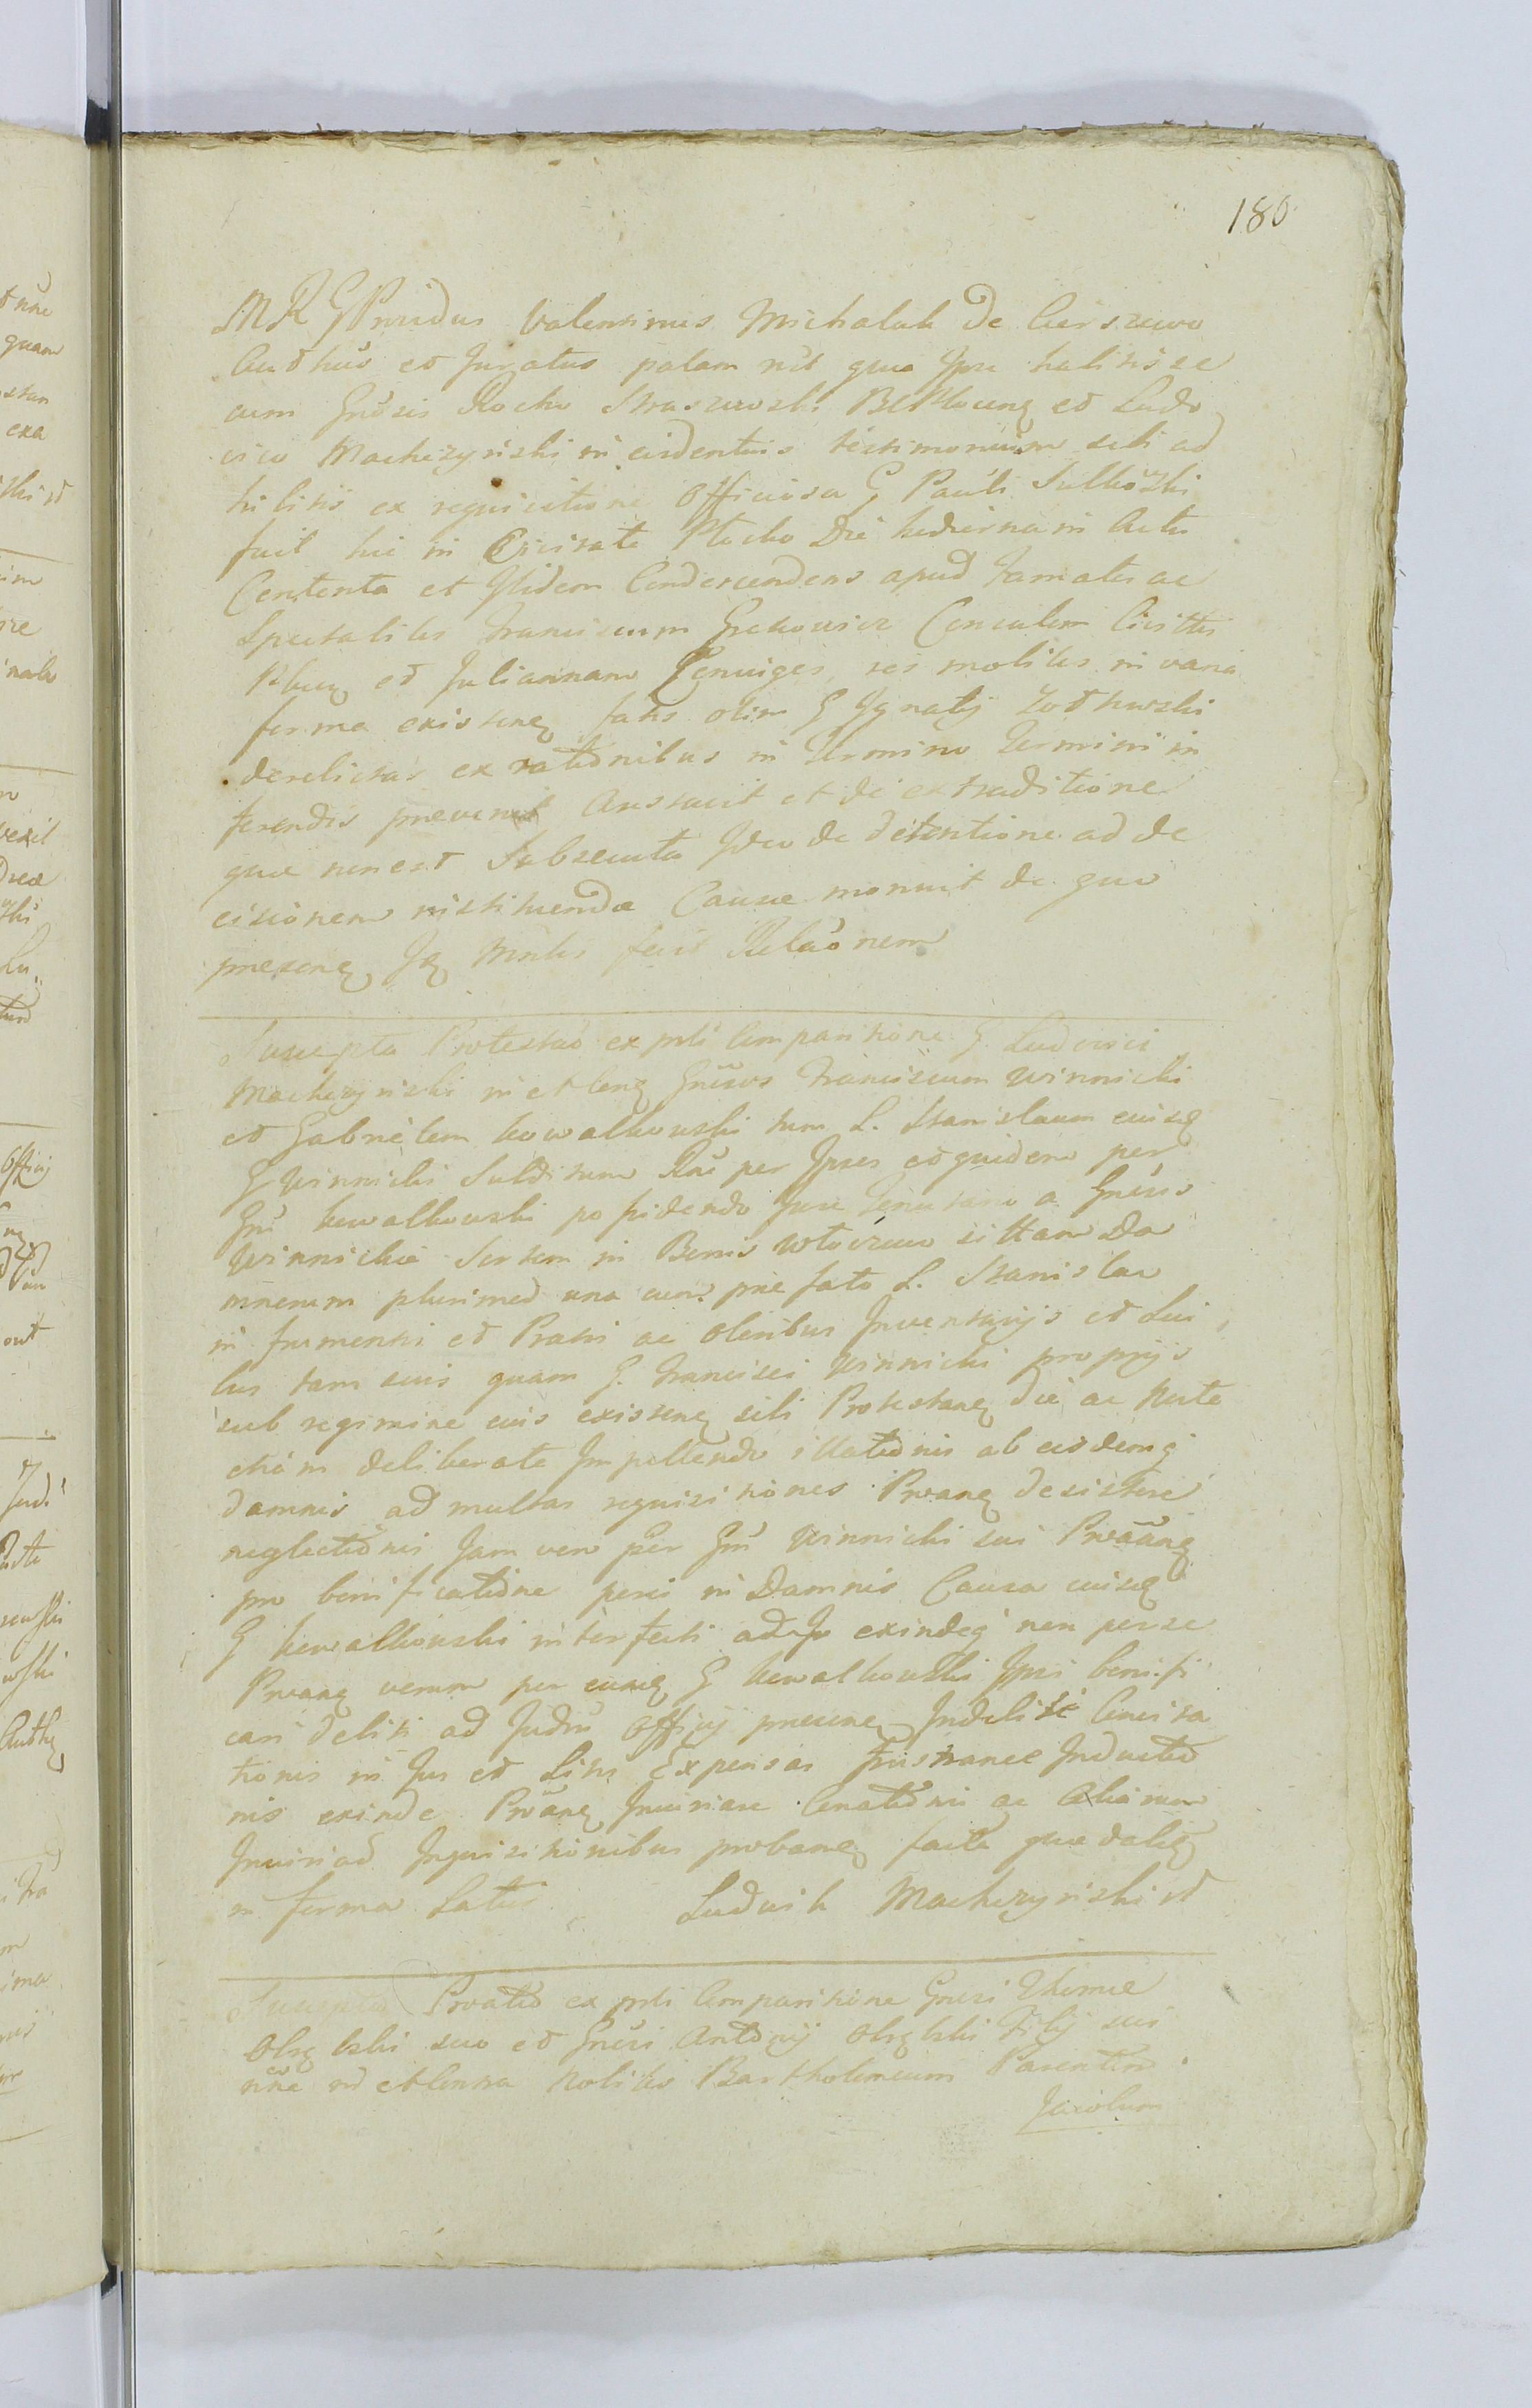 180
MRG Providus Valentinus Michalak de Cierszewo
Authus et Juratus palam rēt qua Ipse habitis se
cum Gnōsis Rocho Straszewski Bl Ploceng et Ludo
vico Machczynski in evidentius testimonium sibi ad
hibitis ex requisitione officiosa G Pauli Sulkowski
fuit hic in Civitate Plocko Die hodierna in Actu
Contenta et Ibidem Condescendens apud Famatos ac
Spectabiles Franciscum Grekowicz Consulem Civittis
Plocen et Juliannam Conuiges res mobiles in varia
forma existeneq fatis olim G Ignatij Zothowski
derelictas ex rationibus in Termino Termini in
ferendis prevenit Arestavit et de extraditione
quae non est Subsecuta Ideo de detentione ad de
cisionem instituendae Causae monuit de quo
preseneq Jq Mntris fecit Relaōnem
Suscepta Protestaō ex prsti Comparitione G Ludovici
Machczynski in et Conq Gnēsos Franciscum Winnicki
et Gabrielem Kowalkowski tum L. Stanislaum eiusq
G Winnicki Subditum Raē per Ipsos et quidem per
Gnū Kowalkowski possidendo Jure Tenutario a Gnēsis
Winnickie Sortem in Bonis Wtoczewo sittam Da
mnorum plurimod una cum prae fato L. Stanislao
in frumentis et Pratis ac Oleribus Inventarijs et Sui
bus tam suis quam G. Francisci Winnicki proprijs
sub regimine eius existeneq sibi Protestaneq die ac Nocte
etiam deliberate Impellendo illationis ab eisdemq
damnis ad multas requisitiones Prōaneq desistere
neglectionis Jam vero per Gnū Winnicki sui Prōāāneq
pro bonificatione porci in Damnis Causa eiusq
G Kowalkowski interfecti ad Jn exindeq non per se
Prōaneq verum per eumq G Kowalkowski Ipsi bonifi
cari debiti ad Judiū Officij preseneq Indebite Concita
tionis in Jus et Litis Expensas frustranee Inductio
nis exinde Prōaneq Injuriare Conationis ac Aliarum
Injuriad Inquisitionibus probaneq facta quae dabiq
in forma Latius Ludwik Machczynski rd
Suscepta Proatio ex prsti Comparitione Gnēsi Thomae
Obrębski suo et Gnēsi Antonij Obrębski Filij sui
nīne in et Contra Nobiles Bartholomeum Parentem
Jacobum